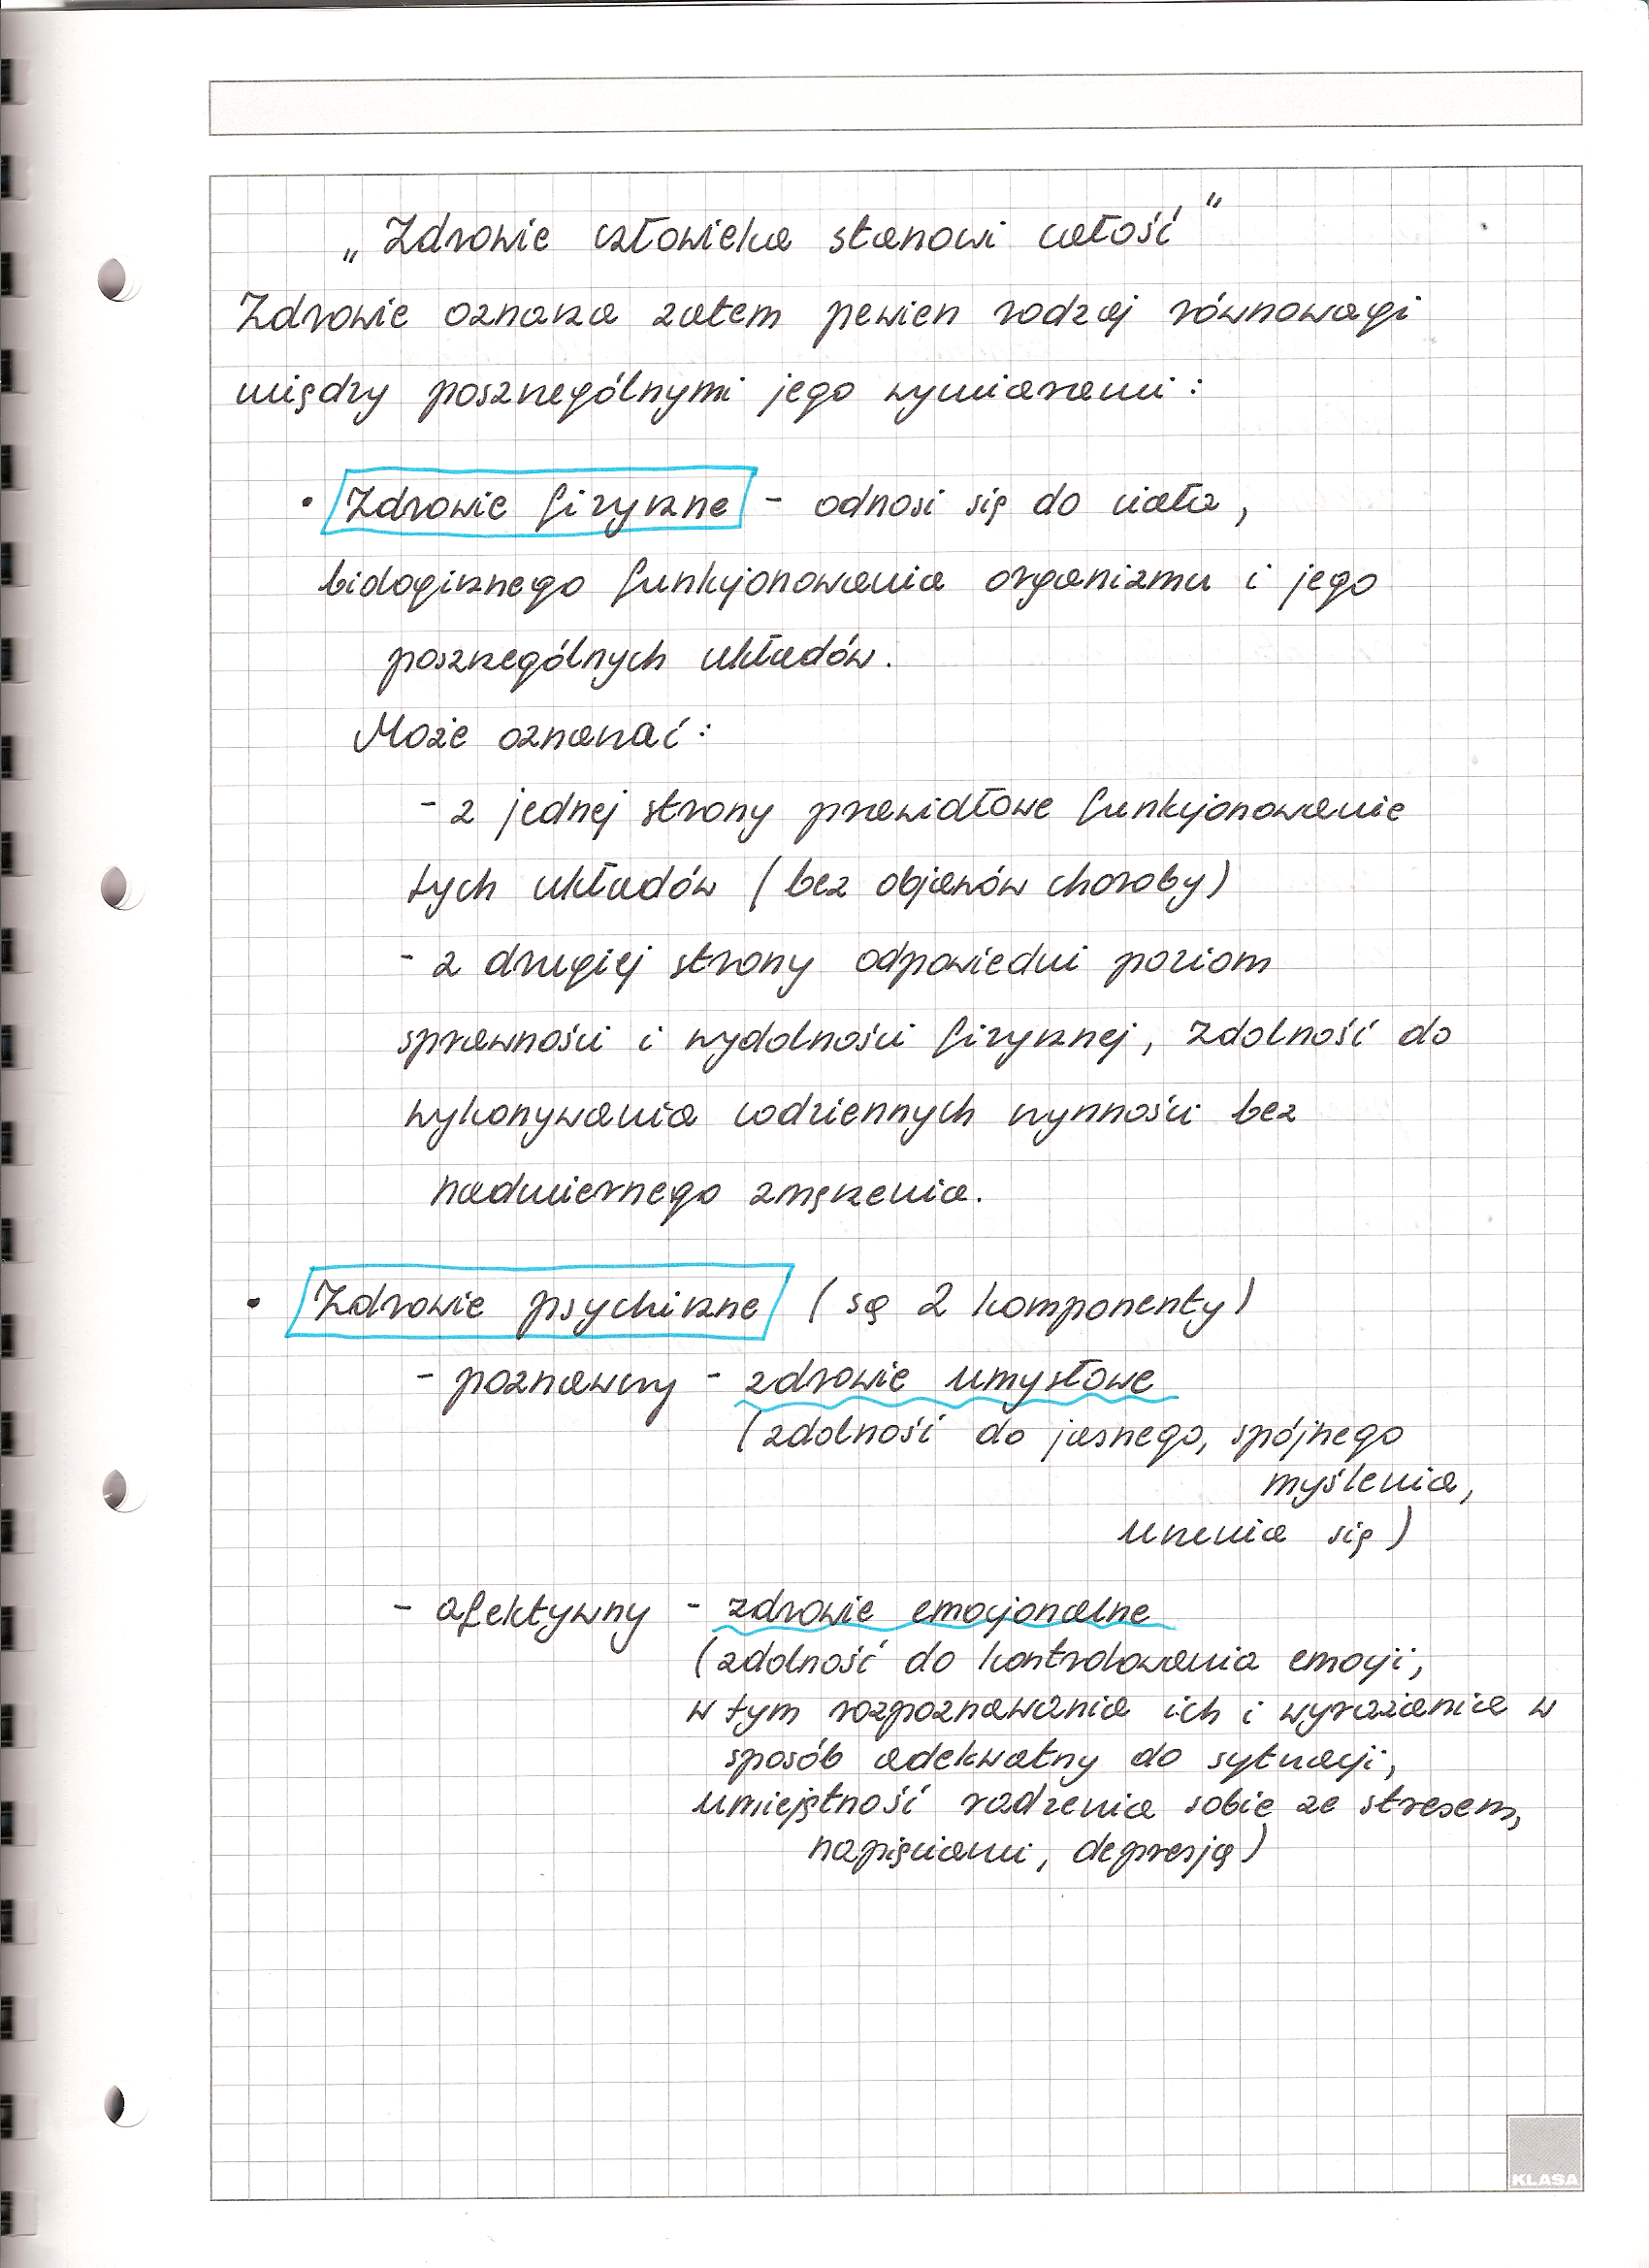 „Zdrowie człowieka stanowi całość"
Zdrowie oznacza zatem pewien rodzaj równowagi
między poszczególnymi jego wymiarami:
• Zdrowie fizyczne - odnosi się do ciała,
biologicznego funkcjonowania organizmu i jego
poszczególnych układów.
Może oznaczać:
- z jednej strony prawidłowe funkcjonowanie
tych układów (bez objawów choroby)
- z drugiej strony odpowiedni poziom
sprawności i wydolności fizycznej, zdolność do
wykonywania codziennych czynności bez
nadmiernego zmęczenia.
• Zdrowie psychiczne (są 2 komponenty)
- poznawczy - zdrowie umysłowe
(zdolność do jasnego, spójnego
myślenia,
uczenia się)
- afektywny - zdrowie emocjonalne
(zdolność do kontrolowania emocji,
w tym rozpoznawania ich i wyrażania w
sposób adekwatny do sytuacji,
umiejętność radzenia sobie ze stresem,
napięciami, depresją)
KLASA